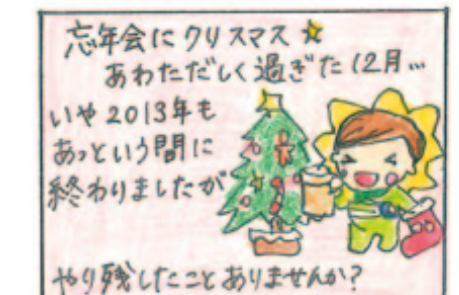 忘年会にクリスマス☆
あわただしく過ぎた12月…
いや2013年も
あっという間に
終わりましたが
やり残したことありませんか?